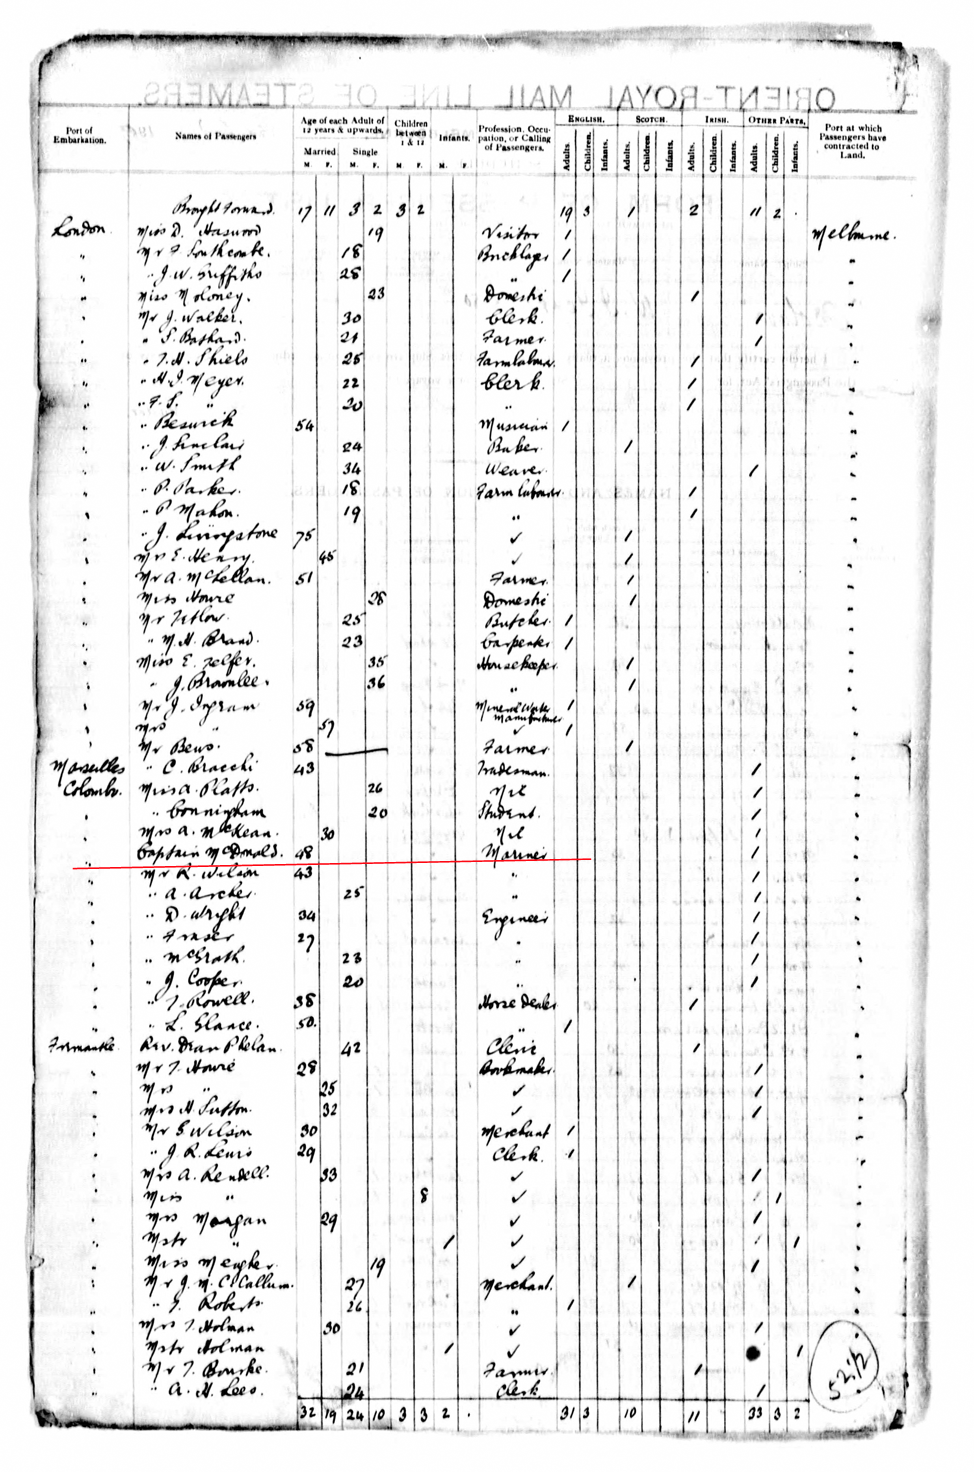 ORIENT-ROYAL MAIL LINE OF STEAMERS.
Port of Embarkation. Names of Passengers Age of each Adult of 12 years & upwards. Children between 1 & 12 Infants. Profession, Occupation, or Calling of Passengers. ENGLISH. SCOTCH. IRISH. OTHER PARTS. Port at which Passengers have contracted to Land.
Married. Single
M. F. M. F. M. F. M. F. Adults. Children. Infants. Adults. Children. Infants. Adults. Children. Infants. Adults. Children. Infants.
Brought forward. 17 11 3 2 3 2 19 3 1 2 11 2 .
London. Miss D. 19 Visitor 1 Melbourne.
" Mr F. Southcombe. 18 Bricklayer 1 "
" " J. W. Griffiths 28 " 1 "
" Miss Moloney. 23 Domestic 1 "
" Mr J. Walker. 30 Clerk. 1 "
" " S. 21 Farmer. 1 "
" " T. H. Shiels 25 Farm labourer. 1 "
" " H. J. Meyer. 22 Clerk. 1 "
" " F. S. " 20 " 1 "
" " Beswick 54 Musician 1 "
" " J. Sinclair 24 Baker. 1 "
" " W. Smith 34 Weaver. 1 "
" " P. Parker. 18 Farm labourer 1 "
" " P. Mahon. 19 " 1 "
" " J. Livingstone 75 ✓ 1 "
" Mrs E. Henry. 45 ✓ 1 "
" Mr A. McLellan. 51 Farmer. 1 "
" Miss Howie 28 Domestic 1 "
" Mr Titlow. 25 Butcher. 1 "
" " M. H. Brand. 23 Carpenter 1 "
" Miss E. Telfer. 35 Housekeeper. 1 "
" " J. Brownlee. 36 " 1 "
" Mr J. Ingram 59 Mineral Water Manufacturer 1 "
" Mrs " 57 ✓ 1 "
" Mr Bews. 58 Farmer. 1 "
Marseilles " C. Bracchi 43 Tradesman. 1 "
Colombo. Miss A. Platts. 26 Nil 1 "
" " Conningham 20 Student. 1 "
" Mrs A. McKean. 30 Nil 1 "
" Captain McDonald. 48 Mariner 1 "
" Mr R. Wilson 43 " 1 "
" " A. Archer 25 " 1 "
" " D. Wright 34 Engineer 1 "
" " Fraser 27 " 1 "
" " McGrath. 23 " 1 "
" " J. Cooper. 20 " 1 "
" " T. Rowell. 38 Horse Dealer 1 "
" " L. Glance. 50. " 1 "
Fremantle. Rev. Dean Phelan. 42 Cleric 1 "
" Mr T. Howie 28 Bookmaker. 1 "
" Mrs " 25 ✓ 1 "
" Mrs H. Sutton. 32 ✓ 1 "
" Mr S Wilson 30 Merchant 1 "
" " J. R. Lewis 29 Clerk. 1 "
" Mrs A. Rendell. 33 ✓ 1 "
" Miss " 8 ✓ 1 "
" Mrs Morgan 29 ✓ 1 "
" Mstr " 1 ✓ 1 "
" Miss Meagher. 19 ✓ 1 "
" Mr J. McCallum. 27 Merchant. 1 "
" " T. Roberts. 26 " 1 "
" Mrs T. Holman 30 ✓ 1
" Mstr Holman 1 ✓ 1
" Mr T. Bourke. 21 Farmer. 1
" " A. H. Lees. 24 Clerk 1
32 19 24 10 3 3 2 . 31 3 10 11 33 3 2